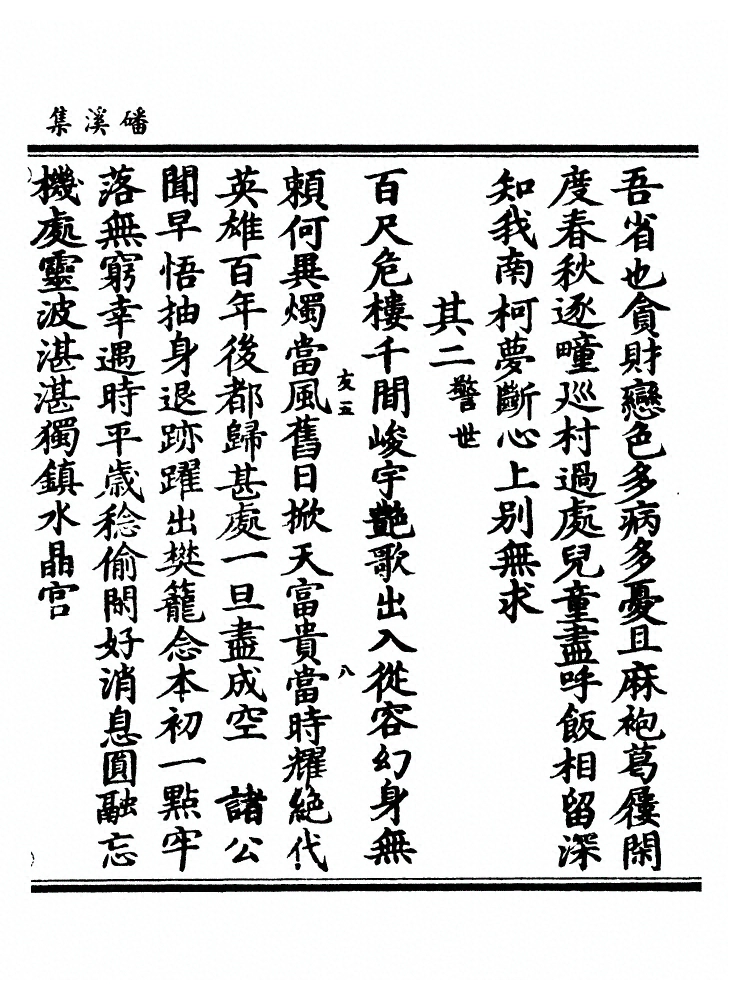 磻溪集
吾省也貪財戀色多病多憂且麻袍葛屨閑
度春秋逐疃巡村過處兒童盡呼飯相留深
知我南柯夢斷心上別無求
其二 警世
百尺危樓千間峻宇艷歌出入從容幻身無
賴何異燭當風舊日掀天富貴當時耀絕代
友五
八
英雄百年後都歸甚處一旦盡成空 諸公
聞早悟抽身退跡躍出樊籠念本初一點牢
落無窮幸遇時平歲稔偷閑好消息圓融忘
機處靈波湛湛獨鎮水晶宮